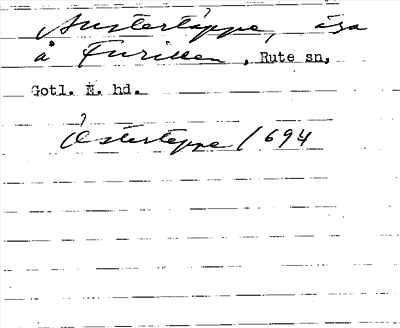 Austertäppe, äga
å Furillen, Rute sn,
Gotl. N. hd.
Österteppe 1694